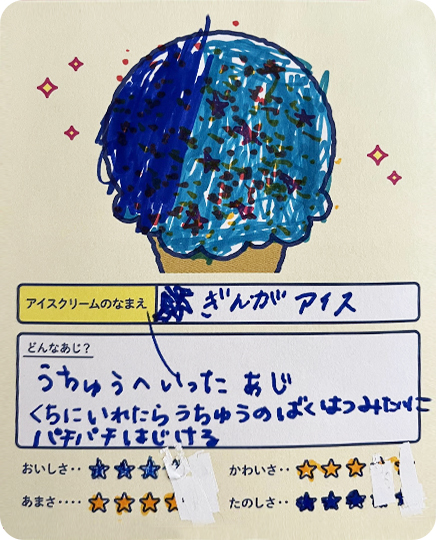 アイスクリームのなまえ ぎんがアイス
どんなあじ？
うちゅうへいった あじ
くちにいれたらうちゅうのばくはつみたいに
パチパチはじける
おいしさ‥ ★★★
かわいさ‥ ★★★
あまさ‥‥ ★★★★
たのしさ‥ ★★★